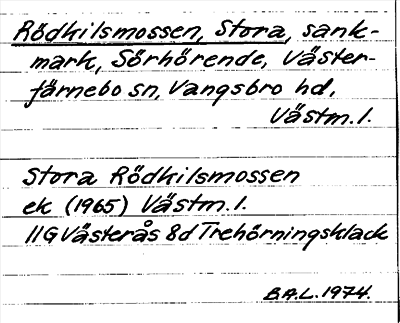 Rödkilsmossen, Stora, sank-
mark, Sörhörende, Väster-
färnebo sn, Vangsbro hd,
Västm. l.
Stora Rödkilsmossen
ek (1965) Västm. l.
11G Västerås 8d Trehörningsklack
B.A.L. 1974.